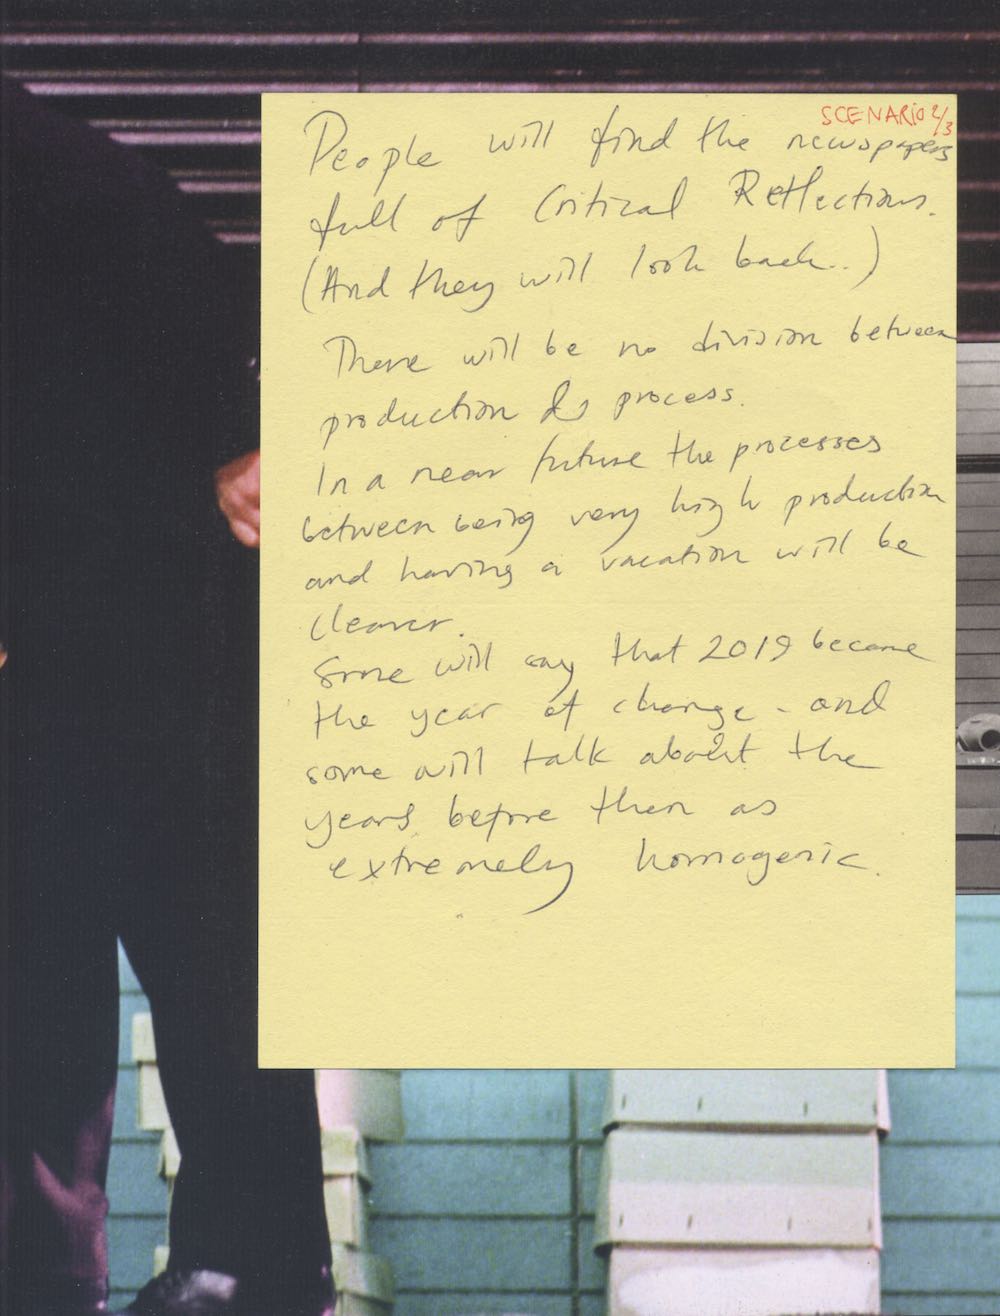 SCENARIO 2/3
People will find the newspapers
full of Critical Reflections.
(And they will look back..)
There will be no division between
production & process.
In a near future the processes
between being very high production
and having a vacation will be
clearer.
Some will say that 2019 became
the year of change - and
some will talk about the
years before then as
extremely homogenic.